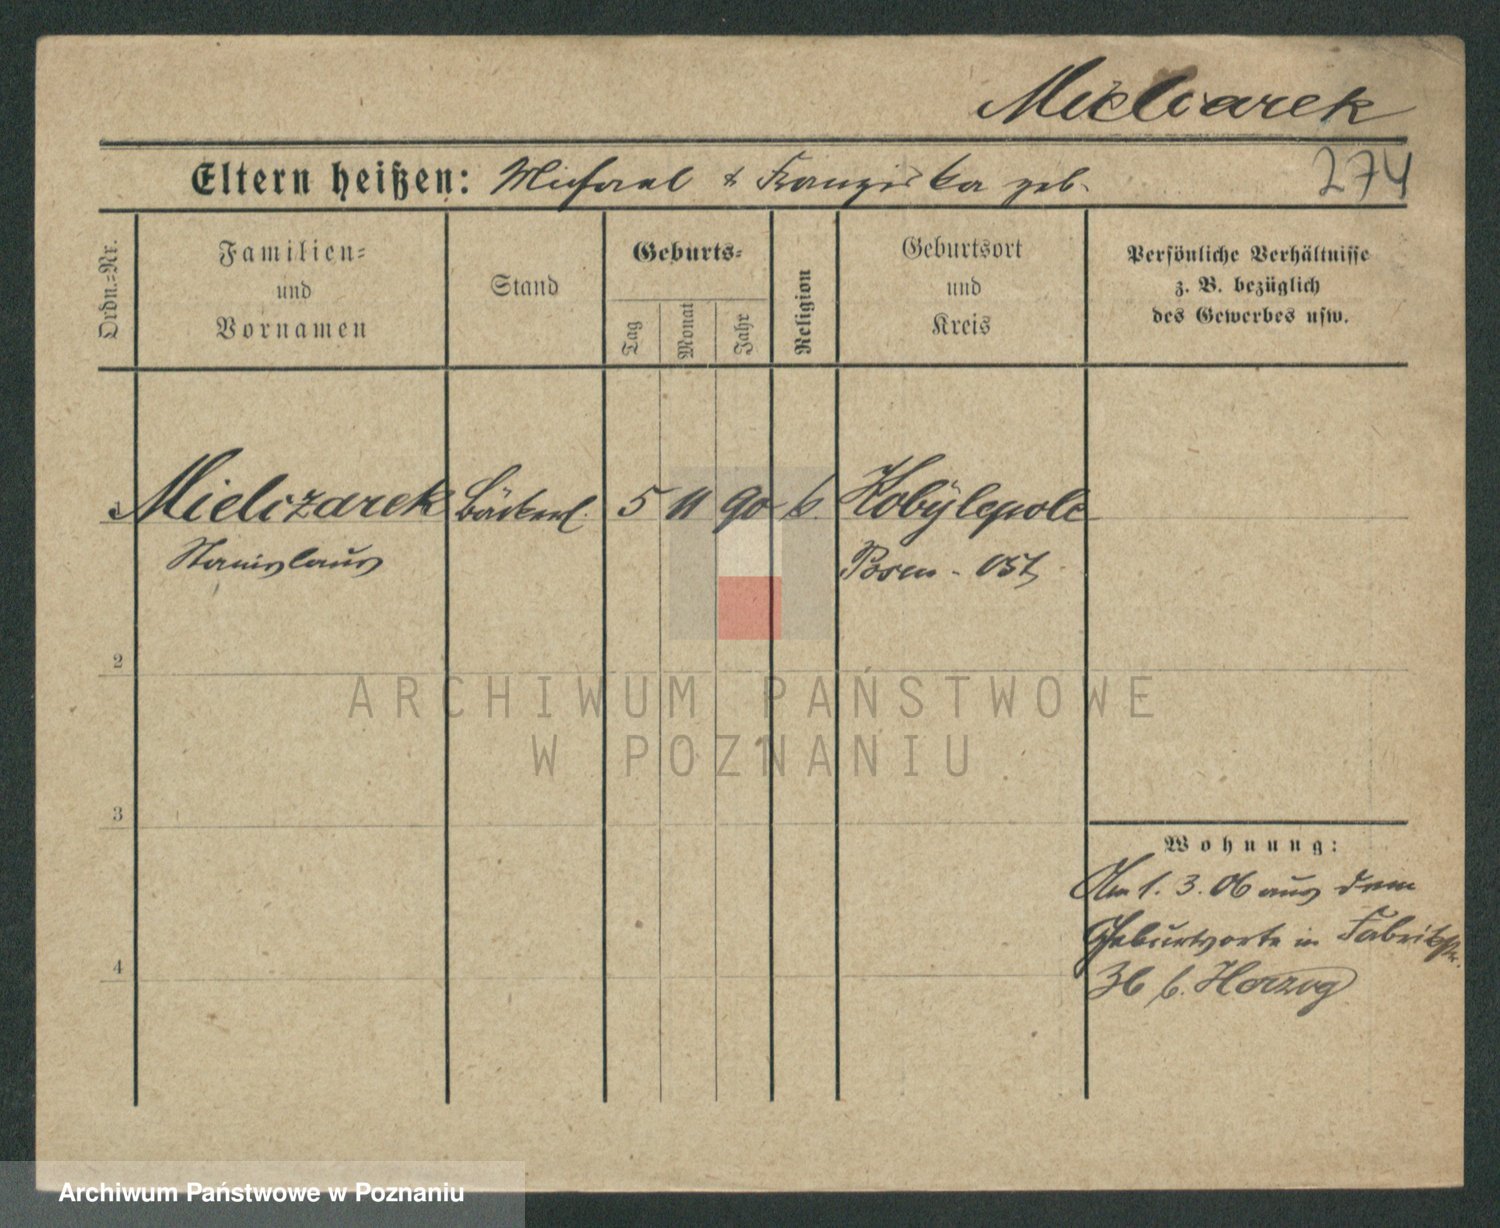 Mielcarek
Eltern heißen: Michael & Franziska geb.
274
Ordn.-Nr.
Familien-
und
Vornamen
Stand
Geburts-
Tag
Monat
Jahr
Religion
Geburtsort
und
Kreis
Persönliche Verhältnisse
z. B. bezüglich
des Gewerbes usw.
1 Mielczarek Bäckerl. 5 11 90 k. Kobylepole
Stanislaus Posen - Ost
2
ARCHIWUM PAŃSTWOWE
W POZNANIU
3
Wohnung:
Am 1. 3. 06 aus dem
Geburtsorte in Fabrikstr.
36 b. Herzog
4
Archiwum Państwowe w Poznaniu